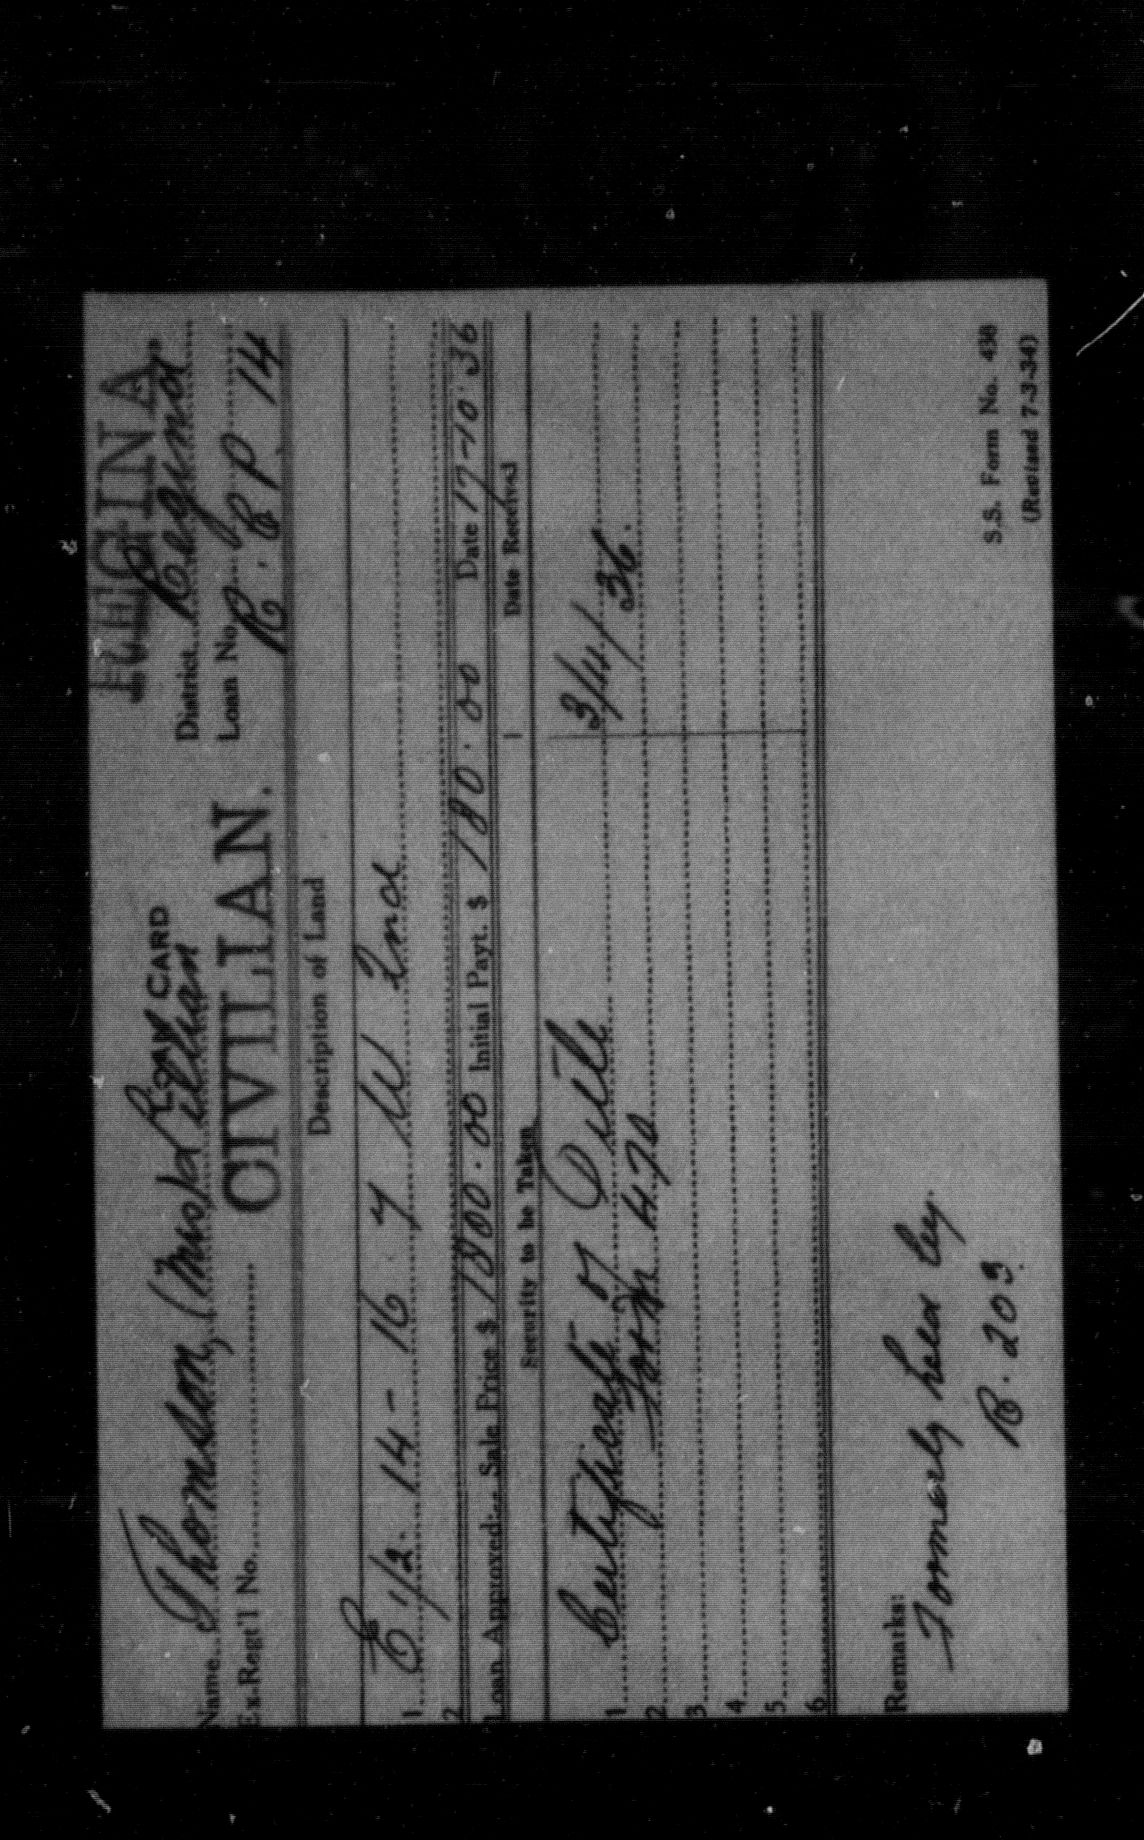 REGINA
LOAN CARD
Name Thomson, (Mrs) Lillian District Regina
Ex-Regt'l No. CIVILIAN. Loan No. R. CP 14
Description of Land
1 E 1/2. 14 - 16 . 7 W 2nd
2
Loan Approved:- Sale Price $ 1800.00 Initial Payt. $ 180.00 Date 17-10-36
Security to be Taken Date Received
1 Certificate of Title 3/4/36.
2 Form 470
3
4
5
6
Remarks:
Formerly held by
R. 203.
S.S. Form No. 438
(Revised 7-3-34)